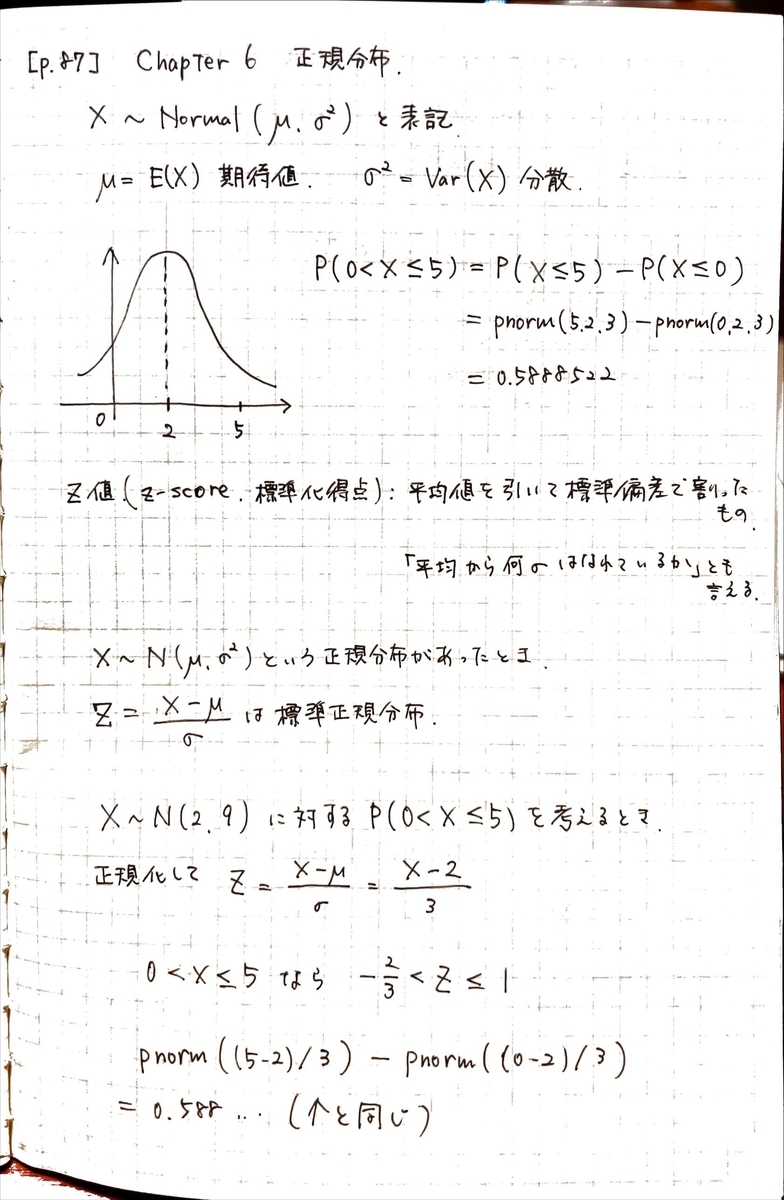 [p.87] Chapter 6 正規分布.
X ~ Normal (μ, σ²) と表記.
μ = E(X) 期待値. σ² = Var(X) 分散.
P(0 < X ≤ 5) = P(X ≤ 5) − P(X ≤ 0)
= pnorm(5,2,3) − pnorm(0,2,3)
= 0.5888522
0 2 5
Z値 (z-score, 標準化得点): 平均値を引いて標準偏差で割った
もの.
「平均から何σはなれているか」とも
言える.
X ~ N(μ, σ²) という正規分布があったとき.
Z = (X − μ)/σ は標準正規分布.
X ~ N(2, 9) に対する P(0 < X ≤ 5) を考えるとき.
正規化して Z = (X−μ)/σ = (X−2)/3
0 < X ≤ 5 なら −2/3 < Z ≤ 1
pnorm((5-2)/3) − pnorm((0-2)/3)
= 0.588 ... (↑と同じ)